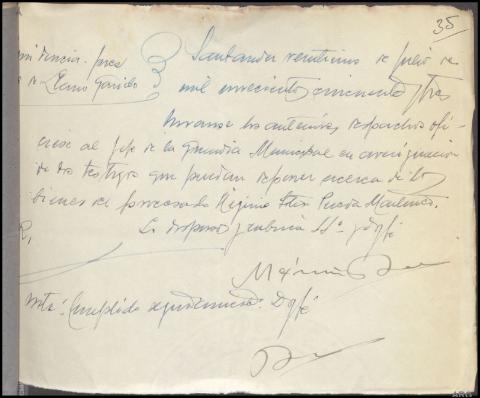 35
Providencia. Juez
Sr. Llano Garrido
Santander veintiuno de Julio de
mil novecientos cincuenta y tres
Unanse los anteriores despachos ofi-
ciese al Jefe de la Guardia Municipal en averiguacion
de dos testigos que puedan deponer acerca de los
bienes del procesado Higinio Félix Pereda
Lo dispuso y rubrica SSª. doy fé
R,
Nota: Cumplido seguidamente. Doy fé